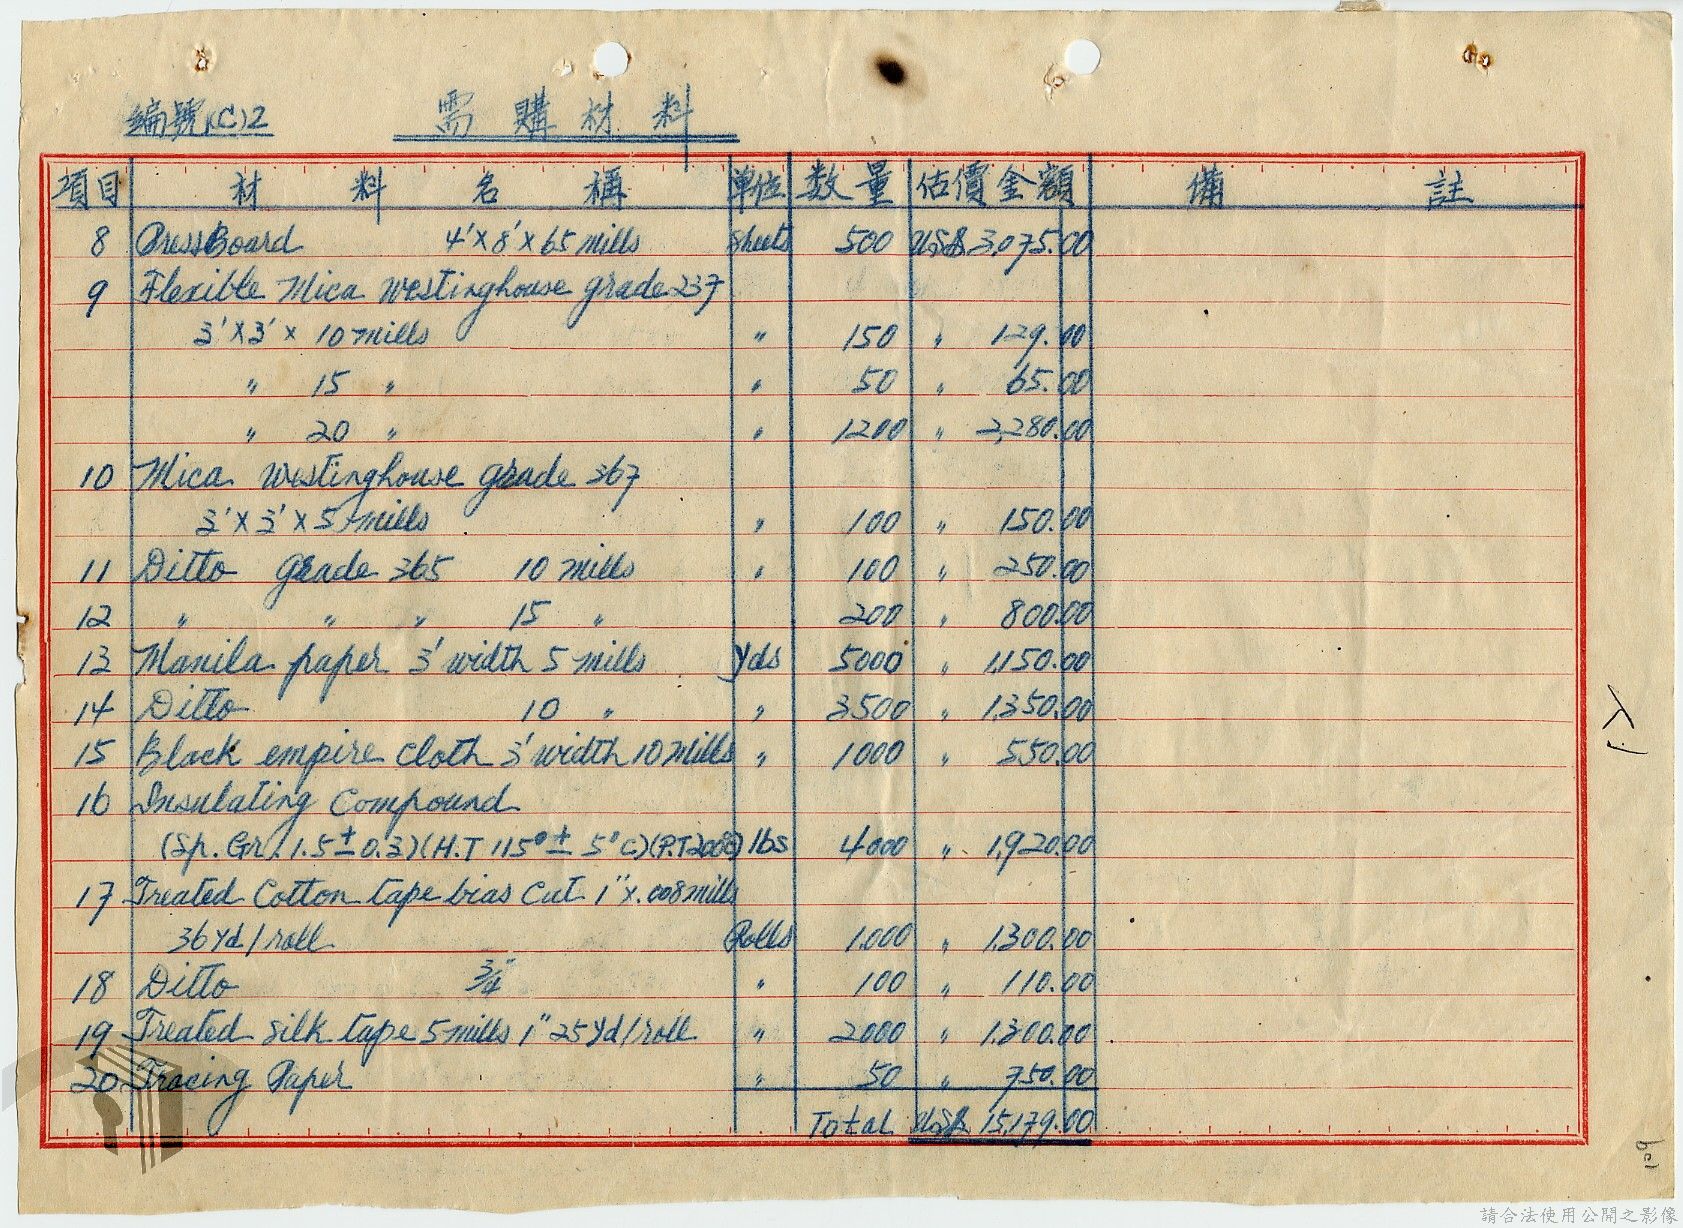 編號(C)2 需購材料
項目 材料名稱 單位 数量 估價金額 備註
8 PressBoard 4'×8'×65 mills Sheets 500 US$ 3,075.00
9 Flexible Mica Westinghouse grade 237
3'×3'× 10 mills " 150 " 129.00
" 15 " " 50 " 65.00
" 20 " " 1200 " 2,280.00
10 Mica Westinghouse grade 367
3'×3'×5 mills " 100 " 150.00
11 Ditto grade 365 10 mills " 100 " 250.00
12 " " " 15 " 200 " 800.00
13 Manila paper 3' width 5 mills Yds 5000 " 1,150.00
14 Ditto 10 " " 3,500 " 1,350.00
15 Black empire cloth 3' width 10 Mills " 1000 " 550.00
16 Insulating Compound
(Sp. Gr. 1.5±0.3)(H.T 115°± 5°C)(P.T200%) lbs 4,000 " 1,920.00
17 Treated Cotton tape bias Cut 1"×.008 mills
36 yd/roll Rolls 1,000 " 1,300.00
18 Ditto 3/4" " 100 " 110.00
19 Treated silk tape 5 mills 1" 25 Yd/roll " 2000 " 1,300.00
20 Tracing Paper " 50 " 750.00
Total US$ 15,179.00
109
請合法使用公開之影像